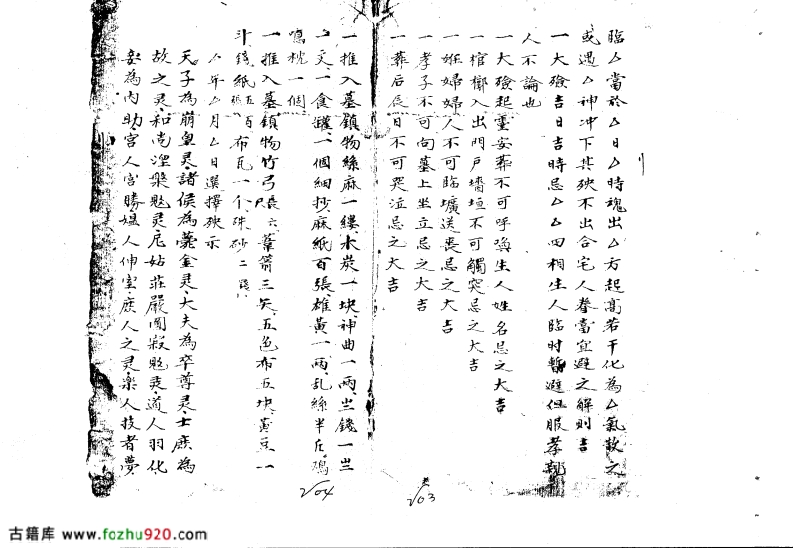 臨△當於△日△時魂出△方起高若干化為△氣散之
或遇△神冲下其殃不出合宅人眷當宜避之解則吉
一大殮吉日吉時忌△△四相生人臨时暫避但服孝親
人不論也
一大殮起灵安葬不可呼喚生人姓名忌之大吉
一棺槨入出門戶墻垣不可觸突忌之大吉
一妊婦婦人不可臨壙送喪忌之大吉
一孝子不可向墓上坐立忌之大吉
一葬后辰日不可哭泣忌之大吉
203
一推入墓鎮物絲麻一缕、水炭一块、神曲一兩、
文、一食罐、一個細抄、麻紙百張、雄黃一兩、乱絲半斤、鳮
鳴枕一個
一推入墓鎮物竹弓長六葦箭三矢、五色布五块、黃豆一
斗錢紙五百布瓦一个、硃砂二錢
△年△月△日選擇殃示
天子為崩皇灵、諸侯為薨金灵、大夫為卒尊灵、士庶為
故之灵、和尚涅槃灵尼姑莊嚴圓寂灵、道人羽化、
為內助、宮人宮嬪媪人伸室、庶人之灵、樂人技者夢
204
古籍库 www.fozhu920.com